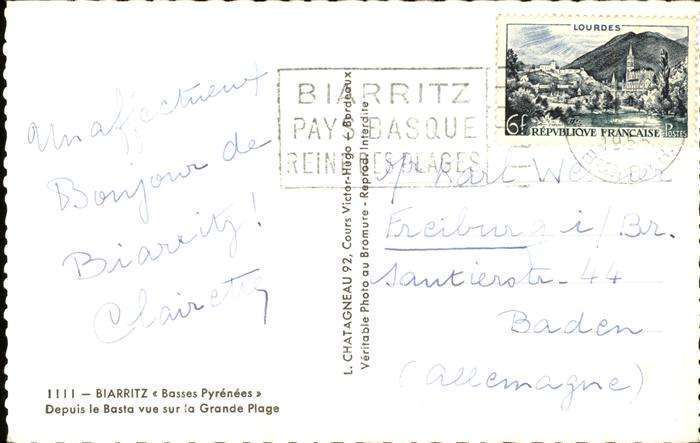 Un affectueux
Bonjour de
Biarritz!
Clairette
1111 — BIARRITZ « Basses Pyrénées »
Depuis le Basta vue sur la Grande Plage
L. CHATAGNEAU 92, Cours Victor-Hugo - Bordeaux
Véritable Photo au Bromure - Reprod. Interdite
BIARRITZ
PAYS BASQUE
REINE DES PLAGES
LOURDES
6f RÉPUBLIQUE FRANÇAISE POSTES
Karl
Freiburg i/Br.
44
Baden
(Allemagne)